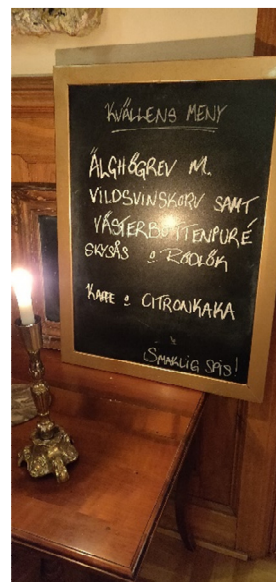 KVÄLLENS MENY
ÄLGHÖGREV M.
VILDSVINSKORV SAMT
VÄSTERBOTTENPURÉ
SKYSÅS o RÖDLÖK
KAFFE o CITRONKAKA
SMAKLIG SPIS!